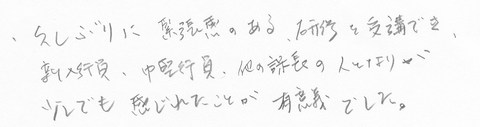 ・久しぶりに緊張感のある、研修を受講でき、
新入行員、中堅行員、他の課長の人となりが
少しでも感じれたことが有意義でした。